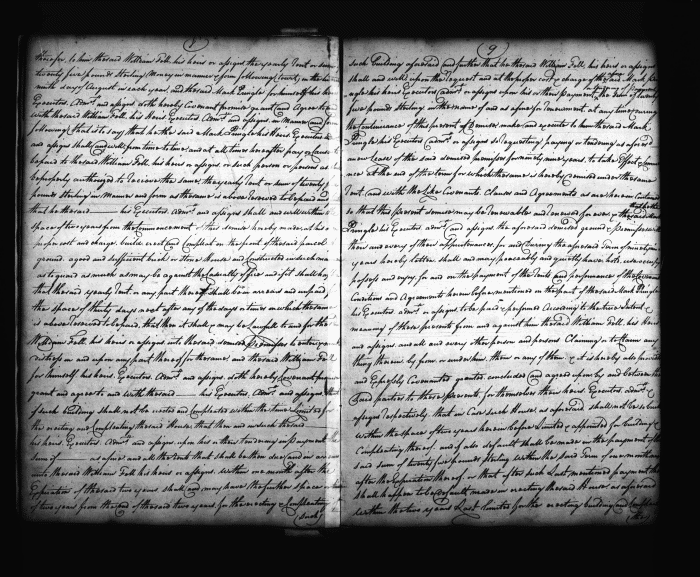 8
Transfer, to him the said William Fell his heirs or assigns the yearly Rent or sum of
twenty five pounds Sterling Money in manner & form following (to wit) on the
ninth day of August in each year and the said Mark Pringle for himself his heirs
Executors Admrs and assigns doth hereby Covenant promise grant and Agree to and
with the said William Fell his Heirs Executors Admrs and assigns in Manner and form
following that is to say that he the said Mark Pringle his Heirs Executors
and assigns shall and will from time to time and at all times hereafter pay or Cause
to be paid to the said William Fell his heirs or assigns or such person or persons as
be properly authorized to receive the same the yearly Rent or sum of twenty five
pounds Sterling in Manner and form as the same is above Reserved to be paid and
that he the said his Executors Admrs and assigns shall and will within the
space of two years from the Commencement of this demise hereby made at his
proper cost and charge build erect and Complete on the front of the said parcel
ground a good and sufficient brick or Stone House and
as to guard as much as may be against the Casualty of fire and if it shall happen
that the said yearly Rent or any part thereof shall be in arrear and unpaid
the space of thirty days next after any of the days or times on which the same
is above reserved to be paid, that then it shall & may be Lawfull to and for the
William Fell his heirs or assigns into the said demised Premises to enter and
distress on and upon any part thereof for the same and the said William Fell
for himself his heirs Executors Admrs and assigns doth hereby Covenant promise
grant and agree to and with the said his Executors Admrs and assigns that
if such building shall not be erected and Completed within the time limited for
the erecting and Completing the said House that then and in such case the said
his heirs Executors Admrs and assigns upon his or their tendering or payment the
sum of as fine and all the rents that shall be then due and in arrear
unto the said William Fell his heirs or assigns within one month after the
Expiration of the said two years shall and may have the further space
of two years from the End of the said two years for the erecting & Completing
(such)
9
such Building aforesaid and further that he the said William Fell his heirs or assigns
shall and will upon the request and at the proper cost & charge of the said Mark
his heirs Executors Admrs or assigns upon his or their payment, the sum of twenty
five pounds Sterling in the name of and as a fine for renewment at any time during
the Continuance of this present Demise make and execute to him the said Mark
Pringle his Executors Admrs or assigns so requesting paying or tendering as aforesaid
a new Lease of the said demised premises for ninety nine years to take Effect & Commence
at the end of the term for which the same is hereby demised under the same
Rent and with the Like Covenants Clauses and Agreements as are herein Contained
so that this present demise may be renewable and renewed for ever & the said Mark
Pringle his Executors Admrs and assigns the aforesaid demised ground & premises with
them and every of their appurtenances for and during the aforesaid Term of ninety nine
years hereby letten shall and may peaceably and quietly have hold use occupy
possess and enjoy for and on the payment of the Rents and performance of the Covenants
Conditions and Agreements herein before mentioned on the part of the said Mark Pringle
his Executors Admrs or assigns to be paid & performed According to the true intent &
meaning of these presents from and against him the said William Fell his Heirs
and assigns and all and every other person and persons Claiming or to Claim any
thing therein by from or under him, them or any of them & it is hereby also provided
and Expressly Covenanted granted concluded and agreed upon by and between the
Said parties to these presents for themselves their heirs Executors Admrs &
assigns respectively that in Case such House, as aforesaid shall not be so built
within the space of two years herein before Limited & appointed for building &
Compleating thereof and if also default shall be made in the payment of the
said sum of twenty five pounds Sterling within the said Term of one month
after the Expiration thereof or that after such Last mentioned payment there
shall happen to be default made in erecting the said House as aforesaid
within the two years Last limited for the erecting building and Compleating
(the)